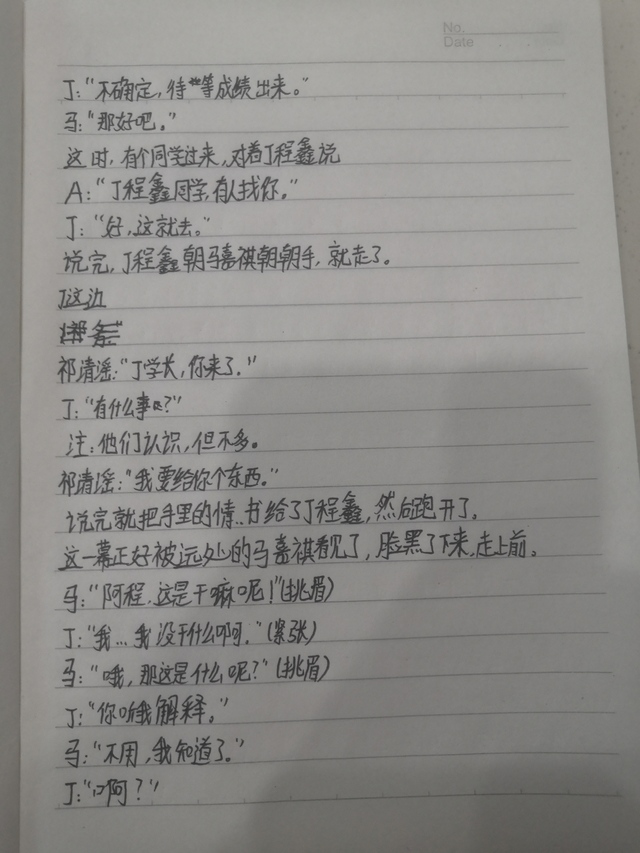 No.
Date
J：“不确定，待等成绩出来。”
马：“那好吧。”
这时，有个同学过来，对着丁程鑫说
A：“丁程鑫同学，有人找你。”
J：“好，这就去。”
说完，丁程鑫朝马嘉祺朝朝手，就走了。
J这边
祁清谣：“丁学长，你来了。”
J：“有什么事吗？”
注：他们认识，但不多。
祁清谣：“我要给你个东西。”
说完就把手里的情..书给了丁程鑫，然后跑开了。
这一幕正好被远处的马嘉祺看见了，脸黑了下来，走上前。
马：“阿程，这是干嘛呢！”（挑眉）
J：“我...我没干什么啊。”（紧张）
马：“哦，那这是什么呢？”（挑眉）
J：“你听我解释。”
马：“不用，我知道了。”
J：“啊？”